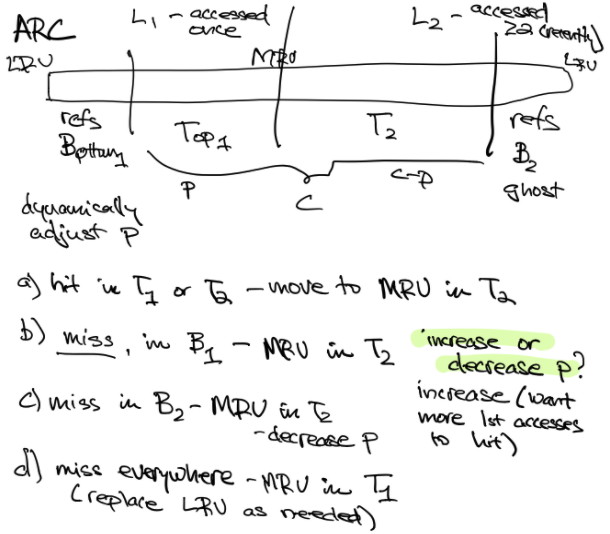 ARC
L1 - accessed once
L2 - accessed ≥2 (recently)
LRU
MRU
LRU
refs
Bottom1
Top1
T2
refs
B2
ghost
P
C
C-P
dynamically
adjust P
a) hit in T1 or T2 - move to MRU in T2
b) miss, in B1 - MRU in T2
increase or
decrease p?
increase (want
more 1st accesses
to hit)
c) miss in B2 - MRU in T2
- decrease P
d) miss everywhere - MRU in T1
(replace LRU as needed)